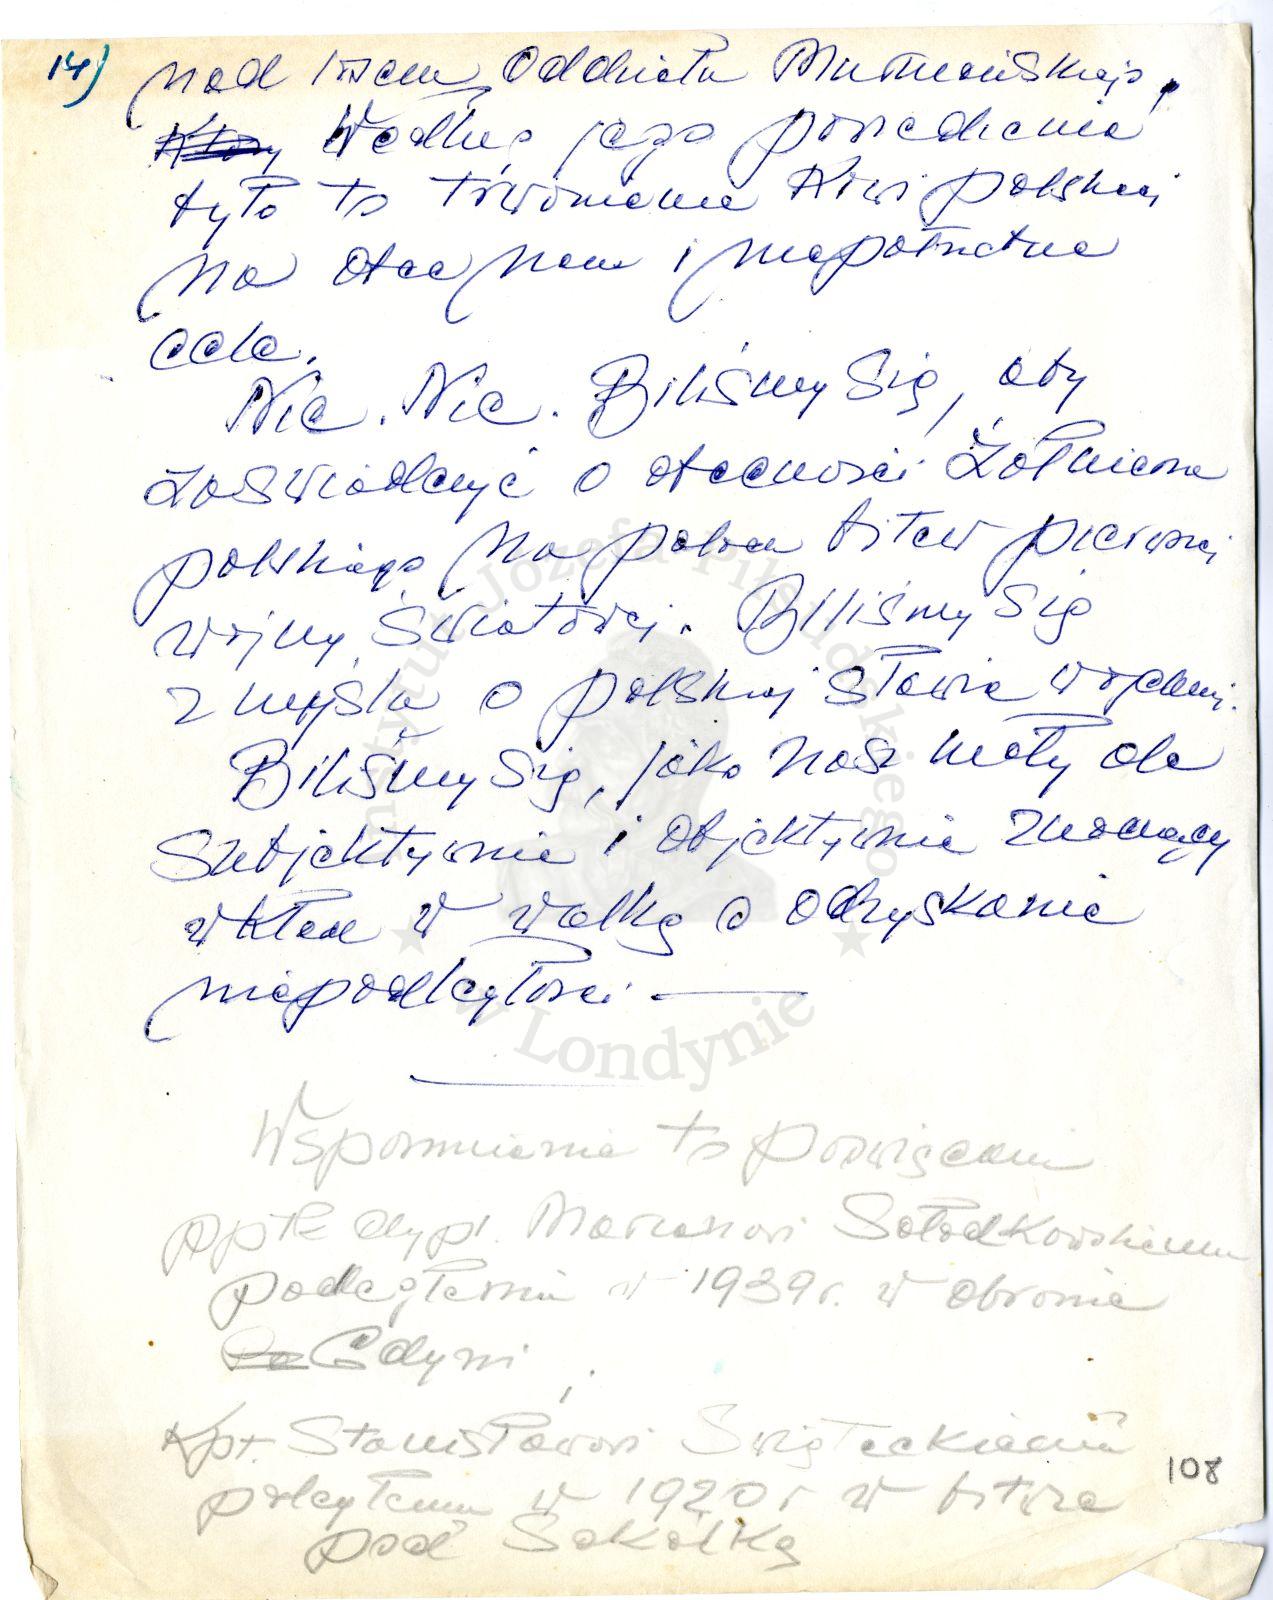 14)
nad losem Oddziału Murmańskiego,
Według jego powiedzenia
było to trwonienie krwi polskiej
na obce nam i niepotrzebne
cele.
Nie. Nie. Biliśmy się, aby
zaświadczyć o obecności żołnierza
polskiego na polach bitew pierwszej
wojny światowej. Biliśmy się
z myślą o polskiej sławie wojennej.
Biliśmy się, jako nasz mały ale
subjektywnie i objektywnie znaczący
wkład w walkę o odzyskanie
niepodległości. —
Wspomnienie to poświęcam
ppłk dypl. Marianowi Sołodkowskiemu
poległemu w 1939 r. w obronie
Gdyni,
kpt. Stanisławowi Świąteckiemu
poległemu w 1920 r w bitwie
pod Sokółką
108
Instytut Józefa Piłsudskiego
w Londynie